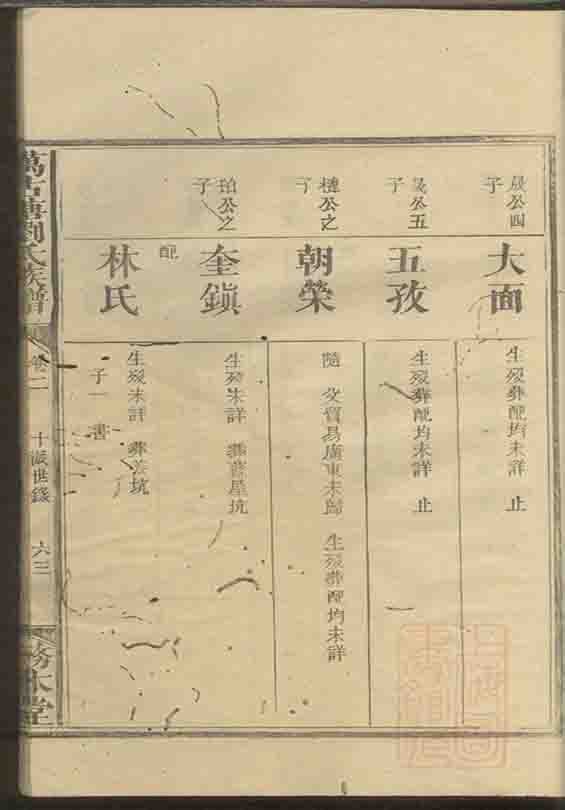 晟公四子
大面
生歿葬配均未詳 止
晟公五子
五孜
生歿葬配均未詳 止
槤公之子
朝榮
隨父貿易廣東未歸 生歿葬配均未詳
公之子
奎鎮
生歿未詳 葬 屋坑
配
林氏
生歿未詳 葬 坑
子一 書
萬 劉氏族譜
卷二 十 派世錄 六三
務本堂